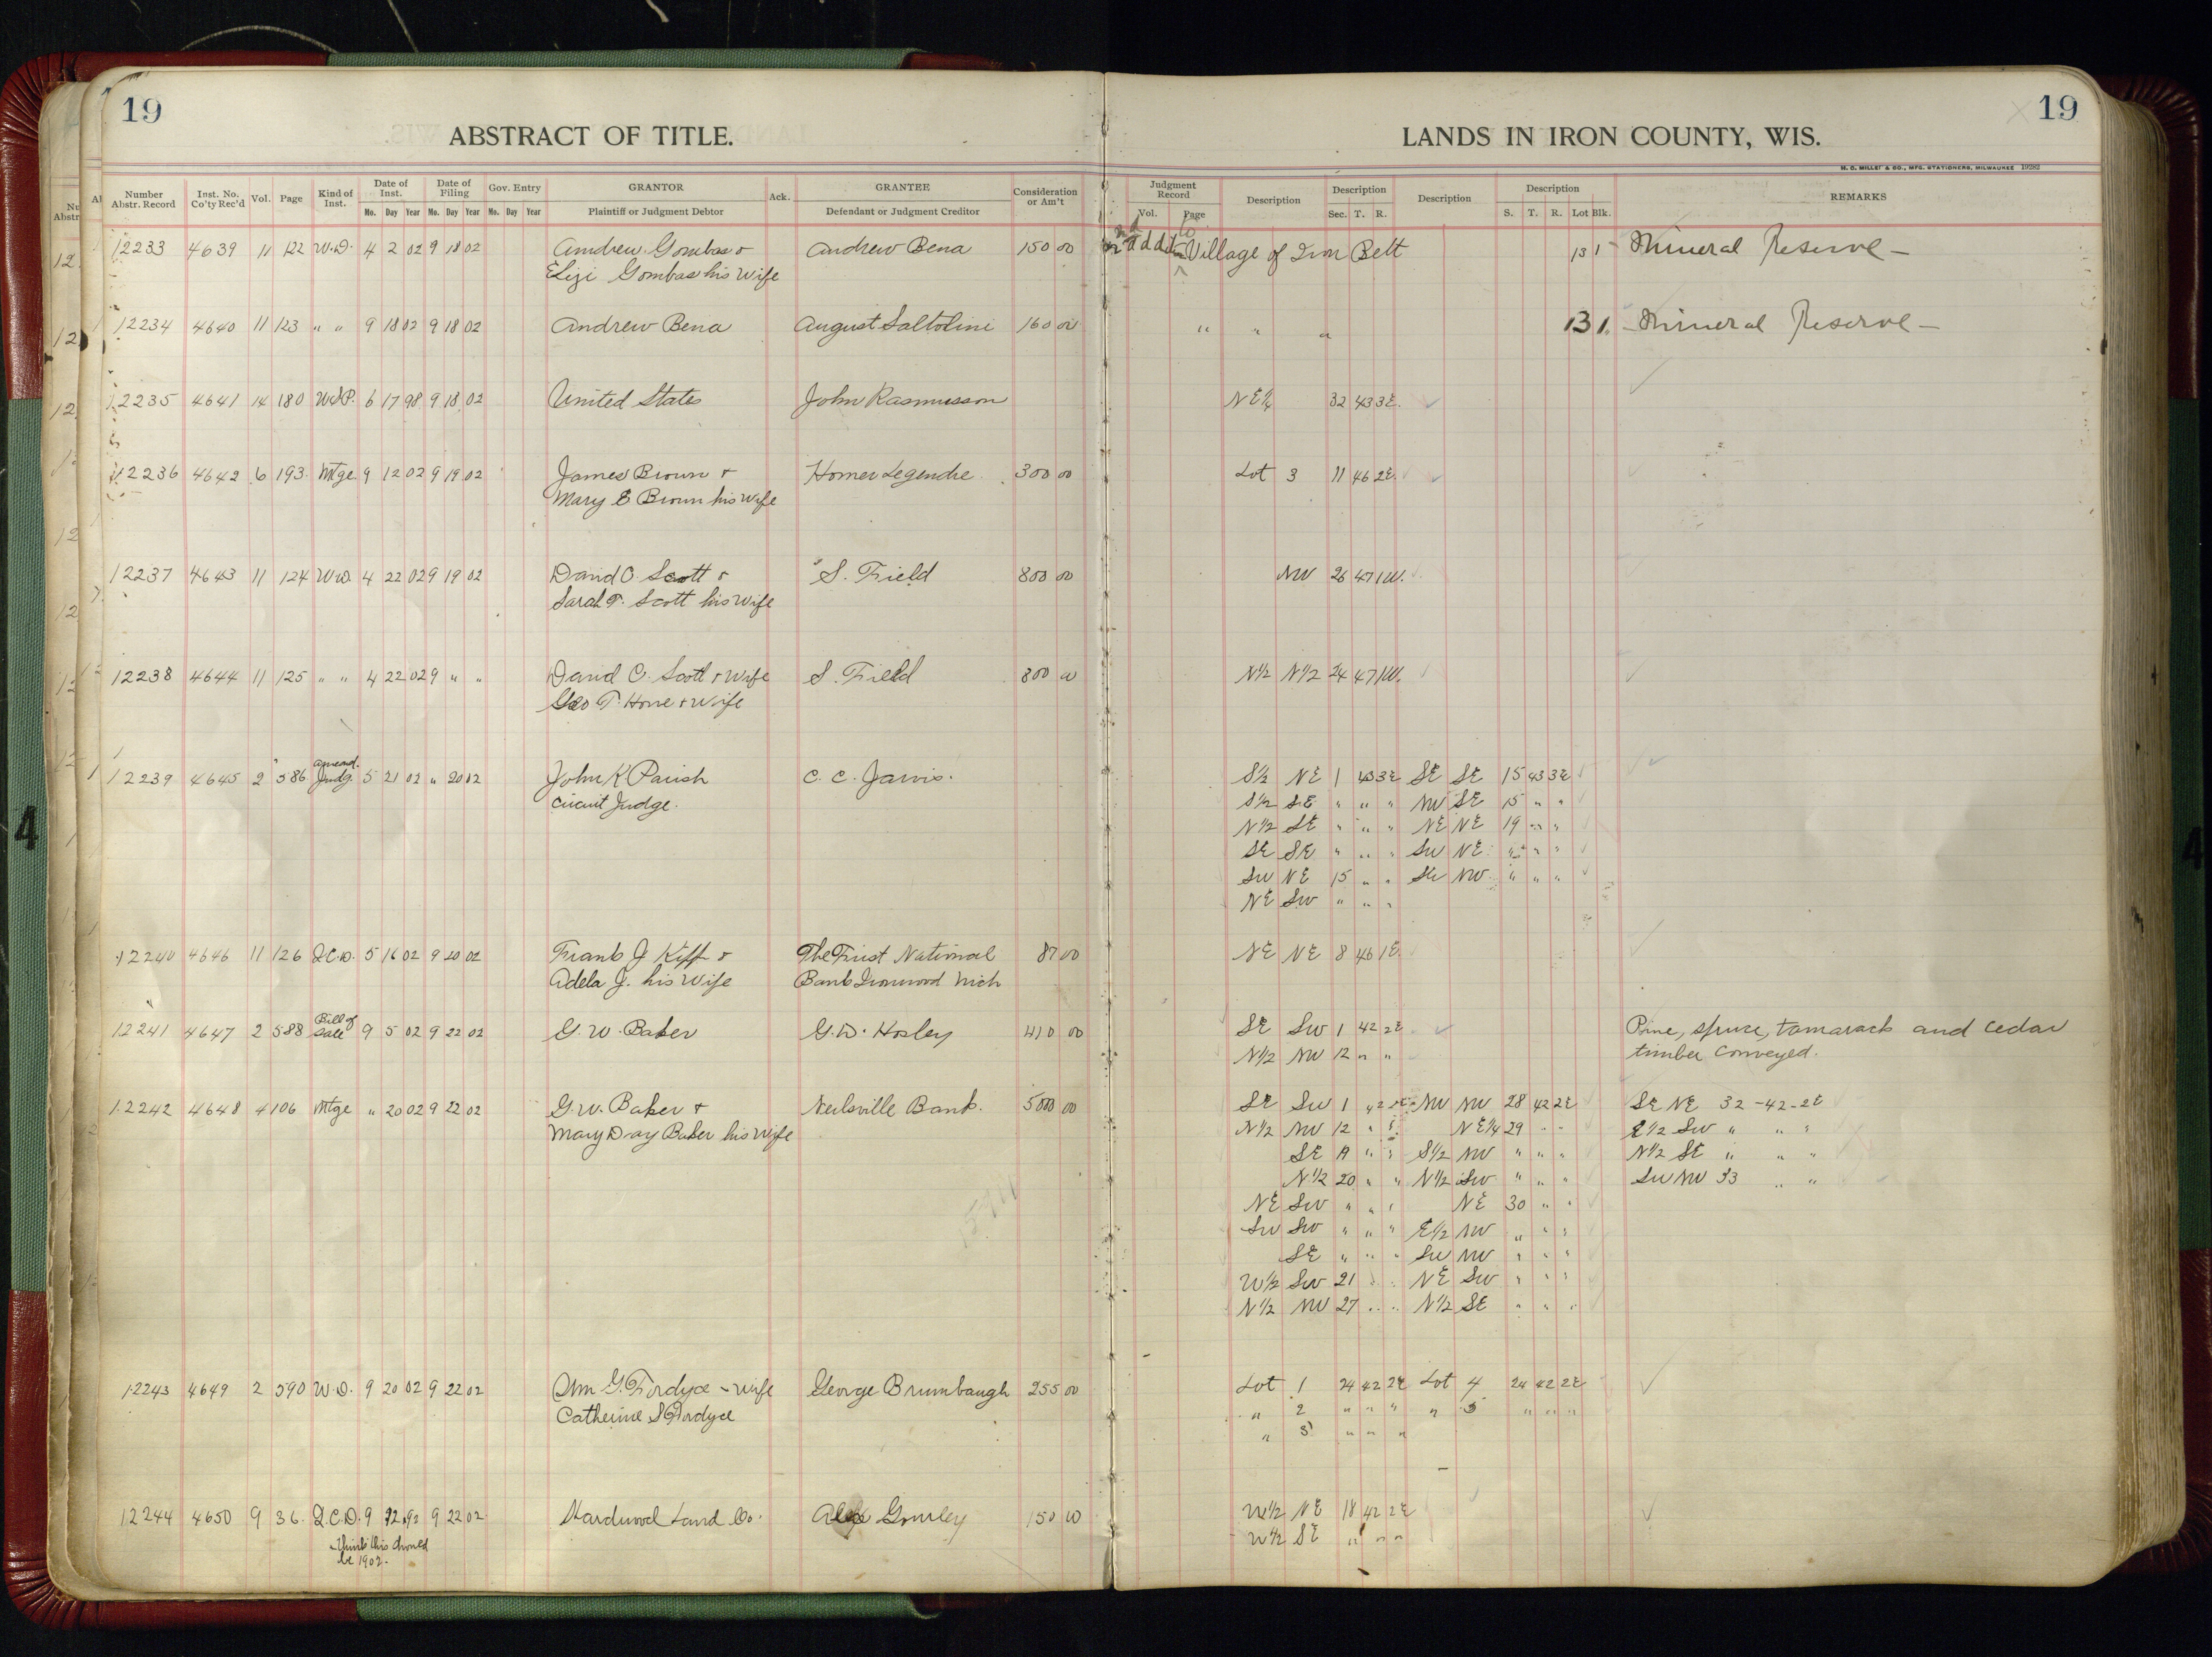 19
ABSTRACT OF TITLE.
LANDS IN IRON COUNTY, WIS.
19
H. C. MILLER & CO., MFG. STATIONERS, MILWAUKEE
Number Abstr. Record Inst. No. Co'ty Rec'd Vol. Page Kind of Inst. Date of Inst. Date of Filing Gov. Entry GRANTOR Ack. GRANTEE Consideration or Am't Judgment Record Description Description Description Description REMARKS
Mo. Day Year Mo. Day Year Mo. Day Year Plaintiff or Judgment Debtor Defendant or Judgment Creditor Vol. Page Sec. T. R. S. T. R. Lot Blk.
12233 4639 11 122 W.D. 4 2 02 9 18 02 Andrew Gombas & Andrew Bena 150 00 Village of Iron Belt 13 1 Mineral Reserve —
Elizi Gombas his Wife
12234 4640 11 123 " " 9 18 02 9 18 02 Andrew Bena August Saltolini 160 00 " " " 13 1 — Mineral Reserve —
12235 4641 14 180 6 17 98 9 18 02 United States John Rasmusson NE¼ 32 43 3E.
12236 4642 6 193 Mtge 9 12 02 9 19 02 James Brown & Homer Legendre 300 00 Lot 3 11 46 2E.
Mary E Brown his Wife
12237 4643 11 124 WD 4 22 02 9 19 02 David C. Scott & S. Field 800 00 NW 26 47 1W.
Sarah T. Scott his Wife
12238 4644 11 125 " " 4 22 02 9 " " David C. Scott & Wife S. Field 800 00 N½ N½ 24 47 1W.
Geo T. Hone & Wife
amend.
12239 4645 2 586 Judg. 5 21 02 " 20 02 John K Parish C. C. Jarvis. S½ NE 1 43 3E SE SE 15 43 3E
Circuit Judge. S½ SE " " " NW SE 15 " "
N½ SE " " " NE NE 19 " "
SE SE " " " SW NE " " "
SW NE 15 " " SE NW " " "
NE SW " " "
12240 4646 11 126 Q.C.D. 5 16 02 9 20 02 Frank J Kiff & The First National 87 00 NE NE 8 46 1E.
Adela J. his Wife Bank Ironwood Mich
Bill of
12241 4647 2 588 Sale 9 5 02 9 22 02 G. W. Baker G. W. Hosley 410 00 SE SW 1 42 2E Pine, spruce, tamarack and cedar
N½ NW 12 " " timber conveyed.
12242 4648 4 106 Mtge " 20 02 9 22 02 G. W. Baker & Neilsville Bank. 5000 00 SE SW 1 42 2E NW NW 28 42 2E SE NE 32 - 42 - 2E
Mary Day Baker his Wife N½ NW 12 " " NE¼ 29 " " E½ SW " " "
SE " " S½ NW " " " N½ SE " " "
N½ 20 " " N½ SW " " " SW NW 33 " "
NE SW " " " NE 30 " "
SW SW " " " E½ NW " " "
SE " " " SW NW " " "
W½ SW 21 " " NE SW " " "
N½ NW 27 " " N½ SE " " "
12243 4649 2 590 W.D. 9 20 02 9 22 02 Wm G. Fordyce - wife George Brumbaugh 255 00 Lot 1 24 42 2E Lot 4 24 42 2E
Catherine S Fordyce " 2 " " " " 5 " " "
" 3 " " "
12244 4650 9 36 Q.C.D. 9 9 22 02 Hardwood Land Co. Alex Gourley 150 00 W½ NE 18 42 2E
Think this should W½ SE " " "
be 1902.